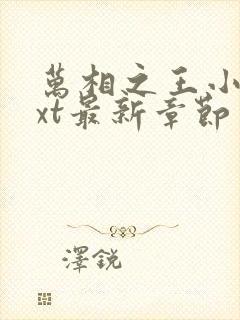 萬相之王小
xt最新章節
澤銳